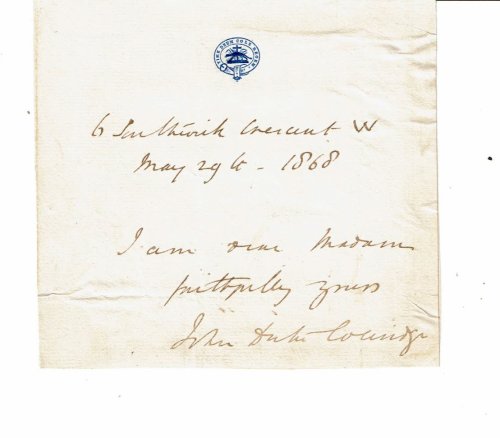 6 Southwick Crescent W
May 29th - 1868
I am dear Madam
faithfully yours
John Duke Coleridge